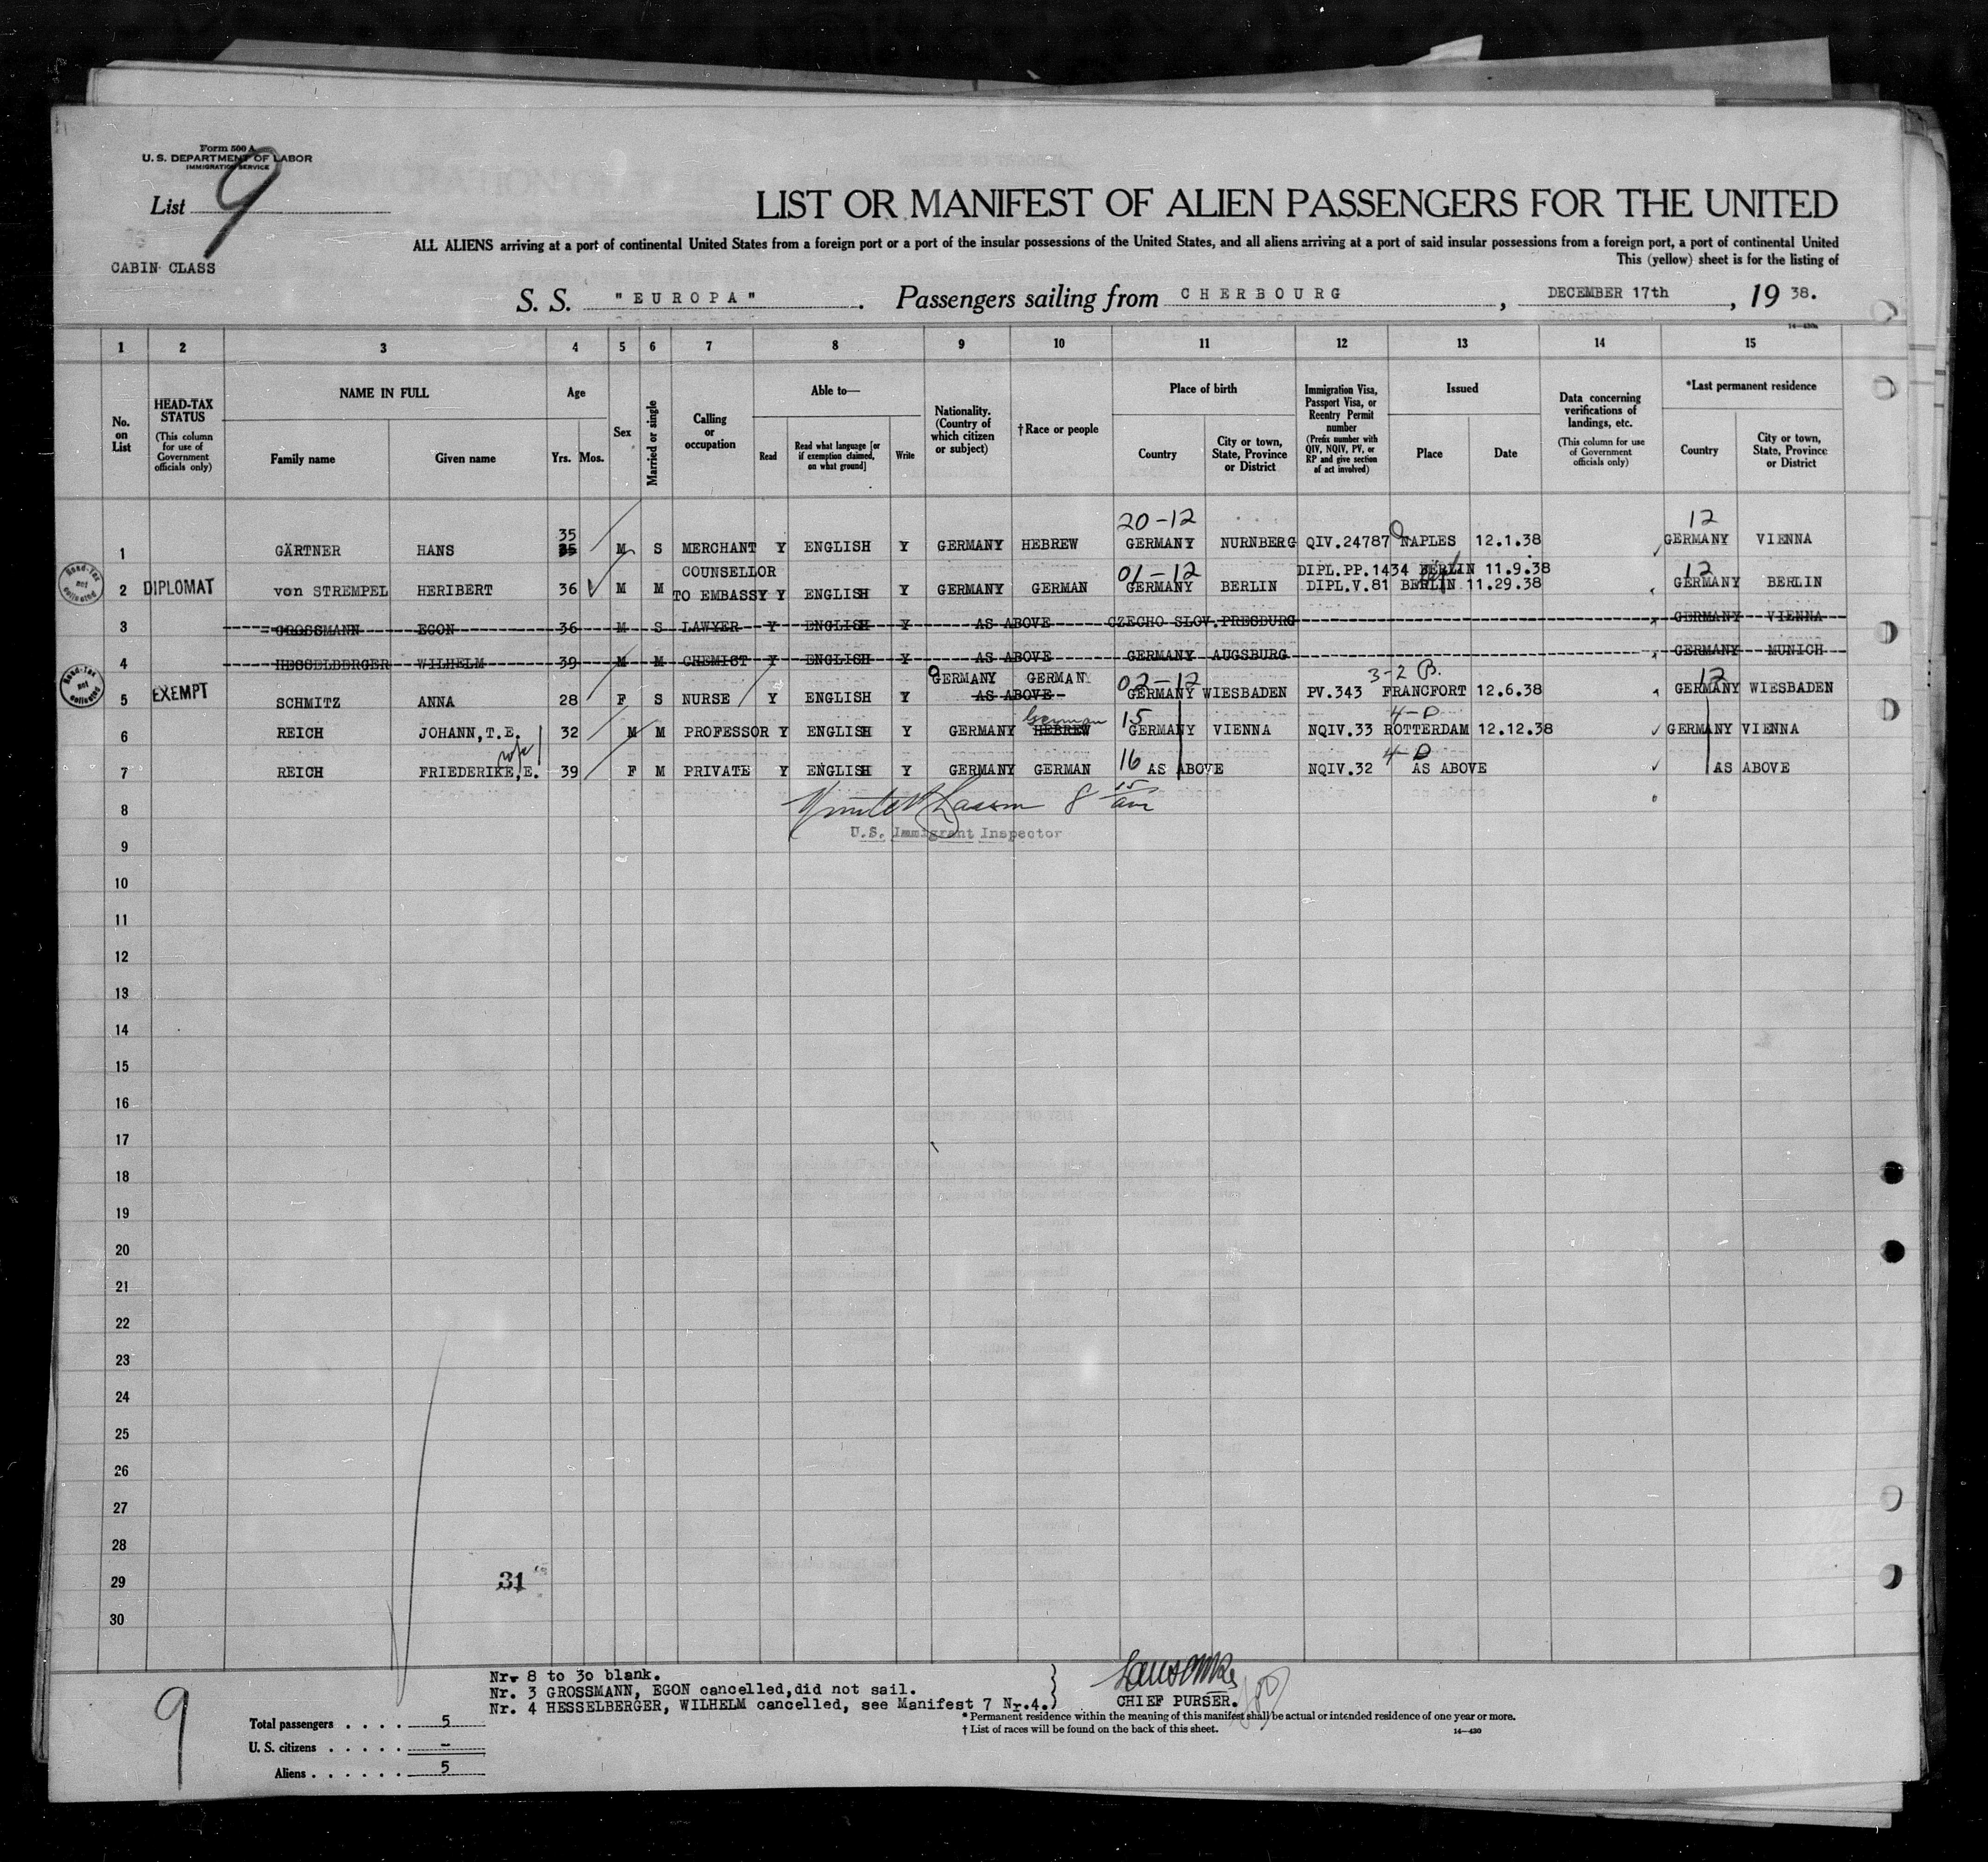 Form 500 A
U. S. DEPARTMENT OF LABOR
IMMIGRATION SERVICE
List 9
LIST OR MANIFEST OF ALIEN PASSENGERS FOR THE UNITED
ALL ALIENS arriving at a port of continental United States from a foreign port or a port of the insular possessions of the United States, and all aliens arriving at a port of said insular possessions from a foreign port, a port of continental United
This (yellow) sheet is for the listing of
CABIN CLASS
S. S. "EUROPA". Passengers sailing from CHERBOURG, DECEMBER 17th, 19 38.
14—430a
1 2 3 4 5 6 7 8 9 10 11 12 13 14 15
No. on List
HEAD-TAX STATUS (This column for use of Government officials only)
NAME IN FULL
Family name Given name
Age
Yrs. Mos.
Sex
Married or single
Calling or occupation
Able to—
Read Read what language [or if exemption claimed, on what ground] Write
Nationality. (Country of which citizen or subject)
†Race or people
Place of birth
Country City or town, State, Province or District
Immigration Visa, Passport Visa, or Reentry Permit number (Prefix number with QIV, NQIV, PV, or RP and give section of act involved)
Issued
Place Date
Data concerning verifications of landings, etc. (This column for use of Government officials only)
*Last permanent residence
Country City or town, State, Province or District
35 20-12 12
1 GÄRTNER HANS 35 M S MERCHANT Y ENGLISH Y GERMANY HEBREW GERMANY NURNBERG QIV.24787 NAPLES 12.1.38 GERMANY VIENNA
Head-Tax not collected
COUNSELLOR 01-12 DIPL.PP.1434 BERLIN 11.9.38 12
2 DIPLOMAT von STREMPEL HERIBERT 36 M M TO EMBASSY Y ENGLISH Y GERMANY GERMAN GERMANY BERLIN DIPL.V.81 BERLIN 11.29.38 GERMANY BERLIN
3 GROSSMANN EGON 36 M S LAWYER Y ENGLISH Y AS ABOVE CZECHO SLOV.PRESBURG GERMANY VIENNA
4 HESSELBERGER WILHELM 39 M M CHEMIST Y ENGLISH Y AS ABOVE GERMANY AUGSBURG GERMANY MUNICH
Head-Tax not collected
GERMANY GERMAN 02-12 3-2 B. 12
5 EXEMPT SCHMITZ ANNA 28 F S NURSE Y ENGLISH Y AS ABOVE GERMANY WIESBADEN PV.343 FRANCFORT 12.6.38 GERMANY WIESBADEN
German 15 4-D
6 REICH JOHANN,T.E. 32 M M PROFESSOR Y ENGLISH Y GERMANY HEBREW GERMANY VIENNA NQIV.33 ROTTERDAM 12.12.38 GERMANY VIENNA
wife 16 4-D
7 REICH FRIEDERIKE,E. 39 F M PRIVATE Y ENGLISH Y GERMANY GERMAN AS ABOVE NQIV.32 AS ABOVE AS ABOVE
8
U.S. Immigrant Inspector
9
10
11
12
13
14
15
16
17
18
19
20
21
22
23
24
25
26
27
28
29 31
30
Nr. 8 to 30 blank.
Nr. 3 GROSSMANN, EGON cancelled,did not sail.
Nr. 4 HESSELBERGER, WILHELM cancelled, see Manifest 7 Nr.4.
CHIEF PURSER.
9
Total passengers . . . . 5
U. S. citizens . . . . . -
Aliens . . . . . . 5
* Permanent residence within the meaning of this manifest shall be actual or intended residence of one year or more.
† List of races will be found on the back of this sheet.
14—430